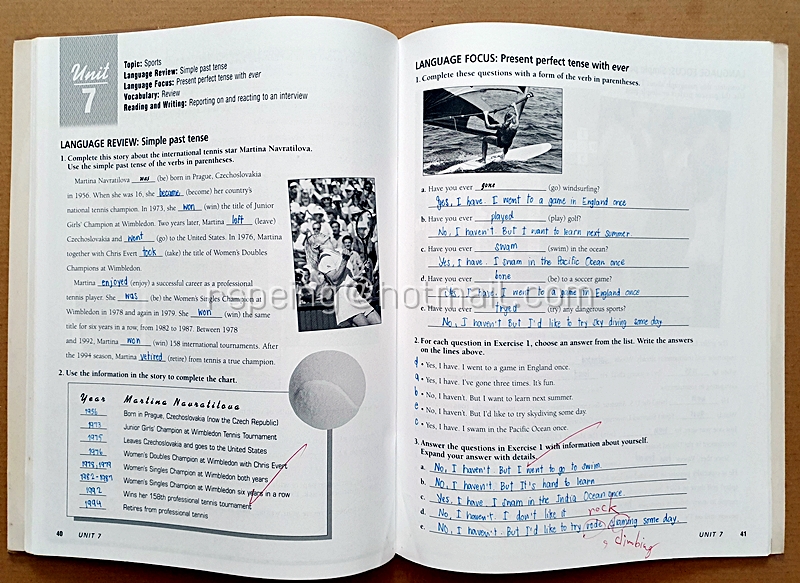 Unit
7
Topic: Sports
Language Review: Simple past tense
Language Focus: Present perfect tense with ever
Vocabulary: Review
Reading and Writing: Reporting on and reacting to an interview
LANGUAGE REVIEW: Simple past tense
1. Complete this story about the international tennis star Martina Navratilova.
Use the simple past tense of the verbs in parentheses.
Martina Navratilova was (be) born in Prague, Czechoslovakia
in 1956. When she was 16, she became (become) her country's
national tennis champion. In 1973, she won (win) the title of Junior
Girls' Champion at Wimbledon. Two years later, Martina left (leave)
Czechoslovakia and went (go) to the United States. In 1976, Martina
together with Chris Evert took (take) the title of Women's Doubles
Champions at Wimbledon.
Martina enjoyed (enjoy) a successful career as a professional
tennis player. She was (be) the Women's Singles Champion at
Wimbledon in 1978 and again in 1979. She won (win) the same
title for six years in a row, from 1982 to 1987. Between 1978
and 1992, Martina won (win) 158 international tournaments. After
the 1994 season, Martina retired (retire) from tennis a true champion.
2. Use the information in the story to complete the chart.
Year Martina Navratilova
1956 Born in Prague, Czechoslovakia (now the Czech Republic)
1973 Junior Girls' Champion at Wimbledon Tennis Tournament
1975 Leaves Czechoslovakia and goes to the United States
1976 Women's Doubles Champion at Wimbledon with Chris Evert
1978,1979 Women's Singles Champion at Wimbledon both years
1982-1987 Women's Singles Champion at Wimbledon six years in a row
1992 Wins her 158th professional tennis tournament
1994 Retires from professional tennis
40 UNIT 7
LANGUAGE FOCUS: Present perfect tense with ever
1. Complete these questions with a form of the verb in parentheses.
a. Have you ever gone (go) windsurfing?
Yes, I have. I went to a game in England once
b. Have you ever played (play) golf?
No, I haven't. But I want to learn next summer.
c. Have you ever swam (swim) in the ocean?
Yes, I have. I swam in the Pacific Ocean once
d. Have you ever bone (be) to a soccer game?
Yes, I have. I went to a game in England once
e. Have you ever tryed (try) any dangerous sports?
No, I haven't But I'd like to try sky diving some day
speing@hotmail.com
2. For each question in Exercise 1, choose an answer from the list. Write the answers
on the lines above.
d • Yes, I have. I went to a game in England once.
a • Yes, I have. I've gone three times. It's fun.
b • No, I haven't. But I want to learn next summer.
e • No, I haven't. But I'd like to try skydiving some day.
c • Yes, I have. I swam in the Pacific Ocean once.
3. Answer the questions in Exercise 1 with information about yourself.
Expand your answer with details.
a. No, I haven't. But I went to go to swim.
b. No, I haven't But It's hard to learn
c. Yes, I have. I swam in the India Ocean once.
d. No, I haven't. I don't like it
rock
e. No, I haven't. But I'd like to try rode claming some day.
climbing
UNIT 7 41